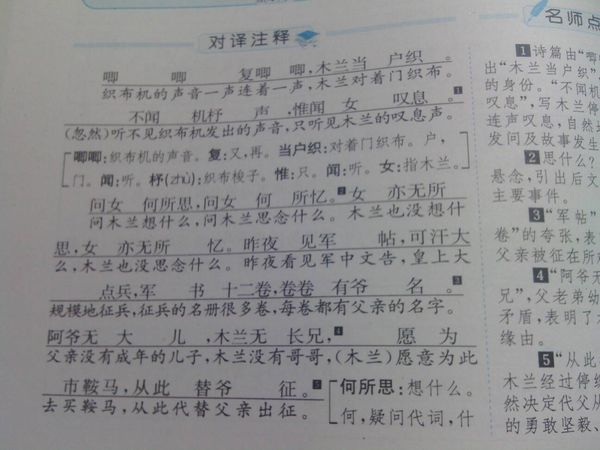 对译注释
唧 唧 复唧 唧,木兰当 户织。
织布机的声音一声连着一声,木兰对着门织布。
不闻 机杼 声,惟闻 女 叹息。1
(忽然)听不见织布机发出的声音,只听见木兰的叹息声。
唧唧:织布机的声音。复:又,再。当户织:对着门织布。户,
门。闻:听。杼(zhù):织布梭子。惟:只。闻:听。女:指木兰。
问女 何所思,问女 何 所忆。2女 亦无所
问木兰想什么,问木兰思念什么。木兰也没想什
思,女 亦无所 忆。昨夜 见军 帖,可汗大
么,木兰也没思念什么。昨夜看见军中文告,皇上大
点兵,军 书 十二卷,卷卷 有爷 名。3
规模地征兵,征兵的名册很多卷,每卷都有父亲的名字。
阿爷无 大 儿,木兰无 长兄,4 愿 为
父亲没有成年的儿子,木兰没有哥哥,(木兰)愿意为此
市鞍马,从此 替爷 征。5
去买鞍马,从此代替父亲出征。
何所思:想什么。
何,疑问代词,什
名师点
1诗篇由“唧唧
出“木兰当户织”,
的身份。“不闻机
叹息”,写木兰停
连声叹息,自然地
发问及故事发生
2思什么?
悬念,引出后文
主要事件。
3“军帖”
卷”的夸张,表
父亲被征在所难
4“阿爷无
兄”,父老弟幼
矛盾,表明了木
缘由。
5“从此
木兰经过停织
然决定代父从
的勇敢坚毅、